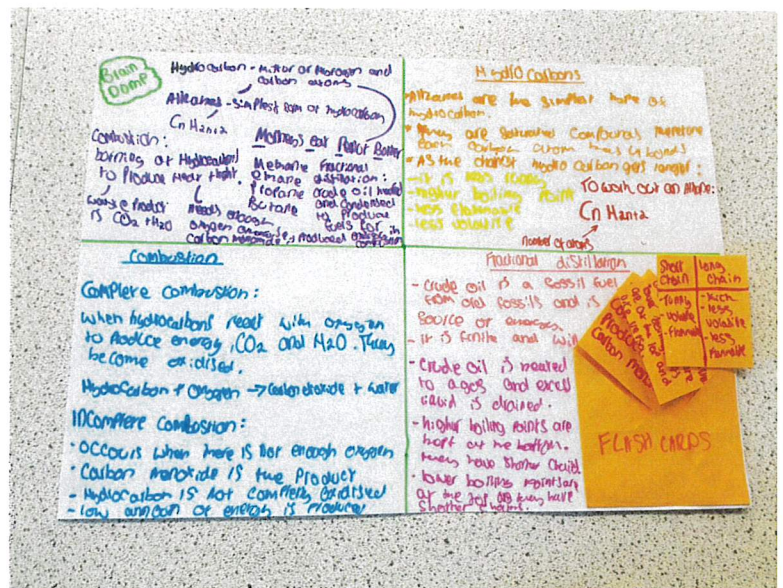 Brain
Dump
Hydrocarbon - mixture of hydrogen and
carbon atoms
Alkanes - simplest form of hydrocarbon
CnH2n+2
Monkeys eat Peanut Butter
Combustion:
burning of Hydrocarbons
to Produce Heat + light.
waste Product
is CO2 + H2O
needs enough
oxygen
carbon monoxide is produced
Methane
ethane
Propane
Butane
Fractional
distillation:
crude oil heated
and condensed
to produce
fuels for
Hydrocarbons
Alkanes are the simplest type of
hydrocarbon.
They are saturated compounds therefore
Each carbon atom has 4 bonds
- As the chain of hydrocarbon gets longer:
- it is less runny
- higher boiling point
- less flammable
- less volatile
To work out an Alkane:
CnH2n+2
number of atoms
Combustion
Complete combustion:
when hydrocarbons react with oxygen
to produce energy, CO2 and H2O. They
become oxidised.
Hydrocarbon + Oxygen → carbon dioxide + water
Incomplete combustion:
- occurs when there is not enough oxygen
- Carbon monoxide is the product
- Hydrocarbon is not completely oxidised
- low amount of energy is produced
Fractional distillation
- crude oil is a fossil fuel
from old fossils and is
source of energy
- it is finite and will
- crude oil is heated
to a gas and excess
liquid is drained.
- higher boiling points are
kept at the bottom.
they have shorter chains
- lower boiling points are
at the top as they have
shorter chains.
Short
Chain
long
Chain
- runny
- volatile
- flammable
- thick
- less
volatile
- less
flammable
Produce
carbon mono
FLASH CARDS